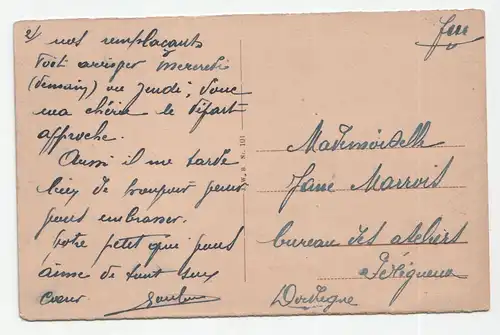 2/ nos remplaçants
vont arriver Mercredi
(demain) ou Jeudi, donc
ma chérie le départ
approche.
Aussi il me tarde
bien de pour
vous embrasser.
Votre petit qui vous
aime de tout son
cœur
W. B N. 101
Mademoiselle
Jane Marrois
bureau des ateliers
Périgueux
Dordogne